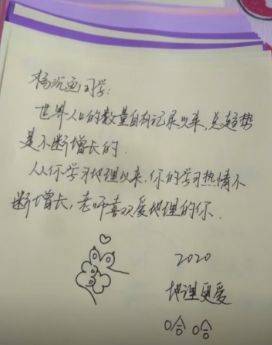 同学:
世界人口的数量自有记录以来,总趋势
是不断增长的.
从你学习地理以来,你的学习热情不
断增长,老师喜欢爱地理的你.
2020
地理更爱
哈哈